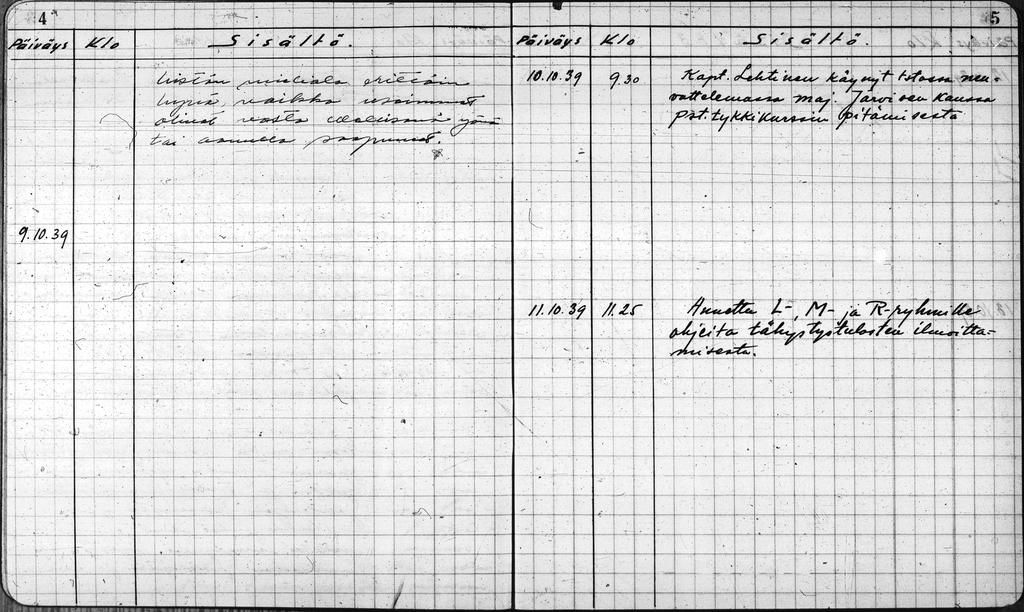 4
Päiväys Klo Sisältö.
erittäin
vaikka useimmat
olivat vasta yönä
tai aamulla saapuneet.
9.10.39
5
Päiväys Klo Sisältö.
10.10.39 9.30 Kapt. Lehtinen käynyt totossa neu-
vottelemassa maj. Järvisen kanssa
pst.tykkikurssin pitämisestä
11.10.39 11.25 Annettu L-, M- ja R-ryhmille
ohjeita tähystystulosten ilmoitta-
misesta.